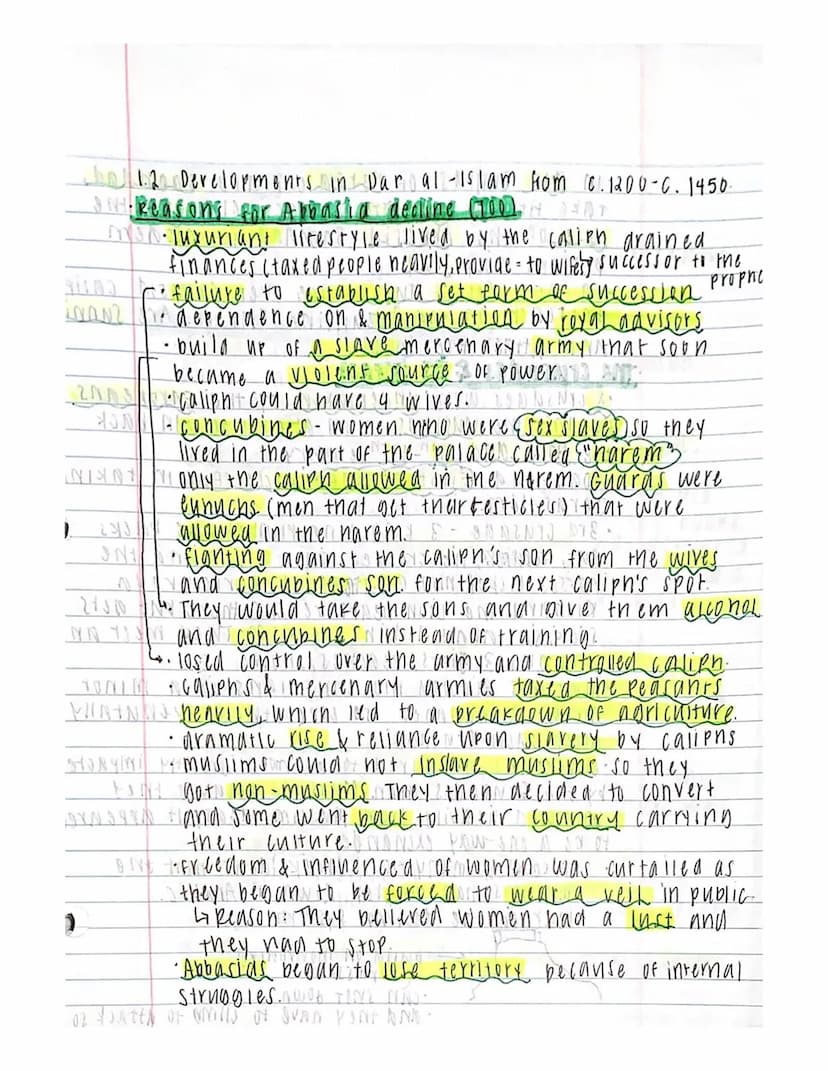 1.2 Developments in Dar al-Islam from C.1200-C. 1450.
Reasons for Abbasid decline (700)
· luxuriant lifestyle lived by the caliph drained
finances (taxed people heavily, provide = to wifes) ↳ successor to the
prophe
· failure to establish a set form of succession
· dependence on & manipulation by royal advisors
· build up of a slave mercenary army that soon
became a violent source of power.
· caliph could have 4 wives.
· concubines - women who were (sex slaves) so they
lived in the part of the palace called "harem"
only the caliph allowed in the harem. Guards were
eunuchs (men that get thier testicles) that were
allowed in the harem.
· fighting against the caliph's son from the wives
and concubines son for the next caliph's spot.
· They would take the sons and give them alcohol
and concubines instead of training.
· losed control over the army and controlled caliph.
· caliphs & mercenary armies taxed the peasants
heavily, which led to a breakdown of agriculture.
· dramatic rise & reliance upon slavery by caliphs
· muslims could not inslave muslims so they
got non-muslims. They then decided to convert
and some went back to their country carrying
their culture.
· freedom & influenced of women was curtailed as
they began to be forced to wear a veil in public.
↳ Reason: They believed women had a lust and
they had to stop.
· Abbasids began to lose territory because of internal
struggles.